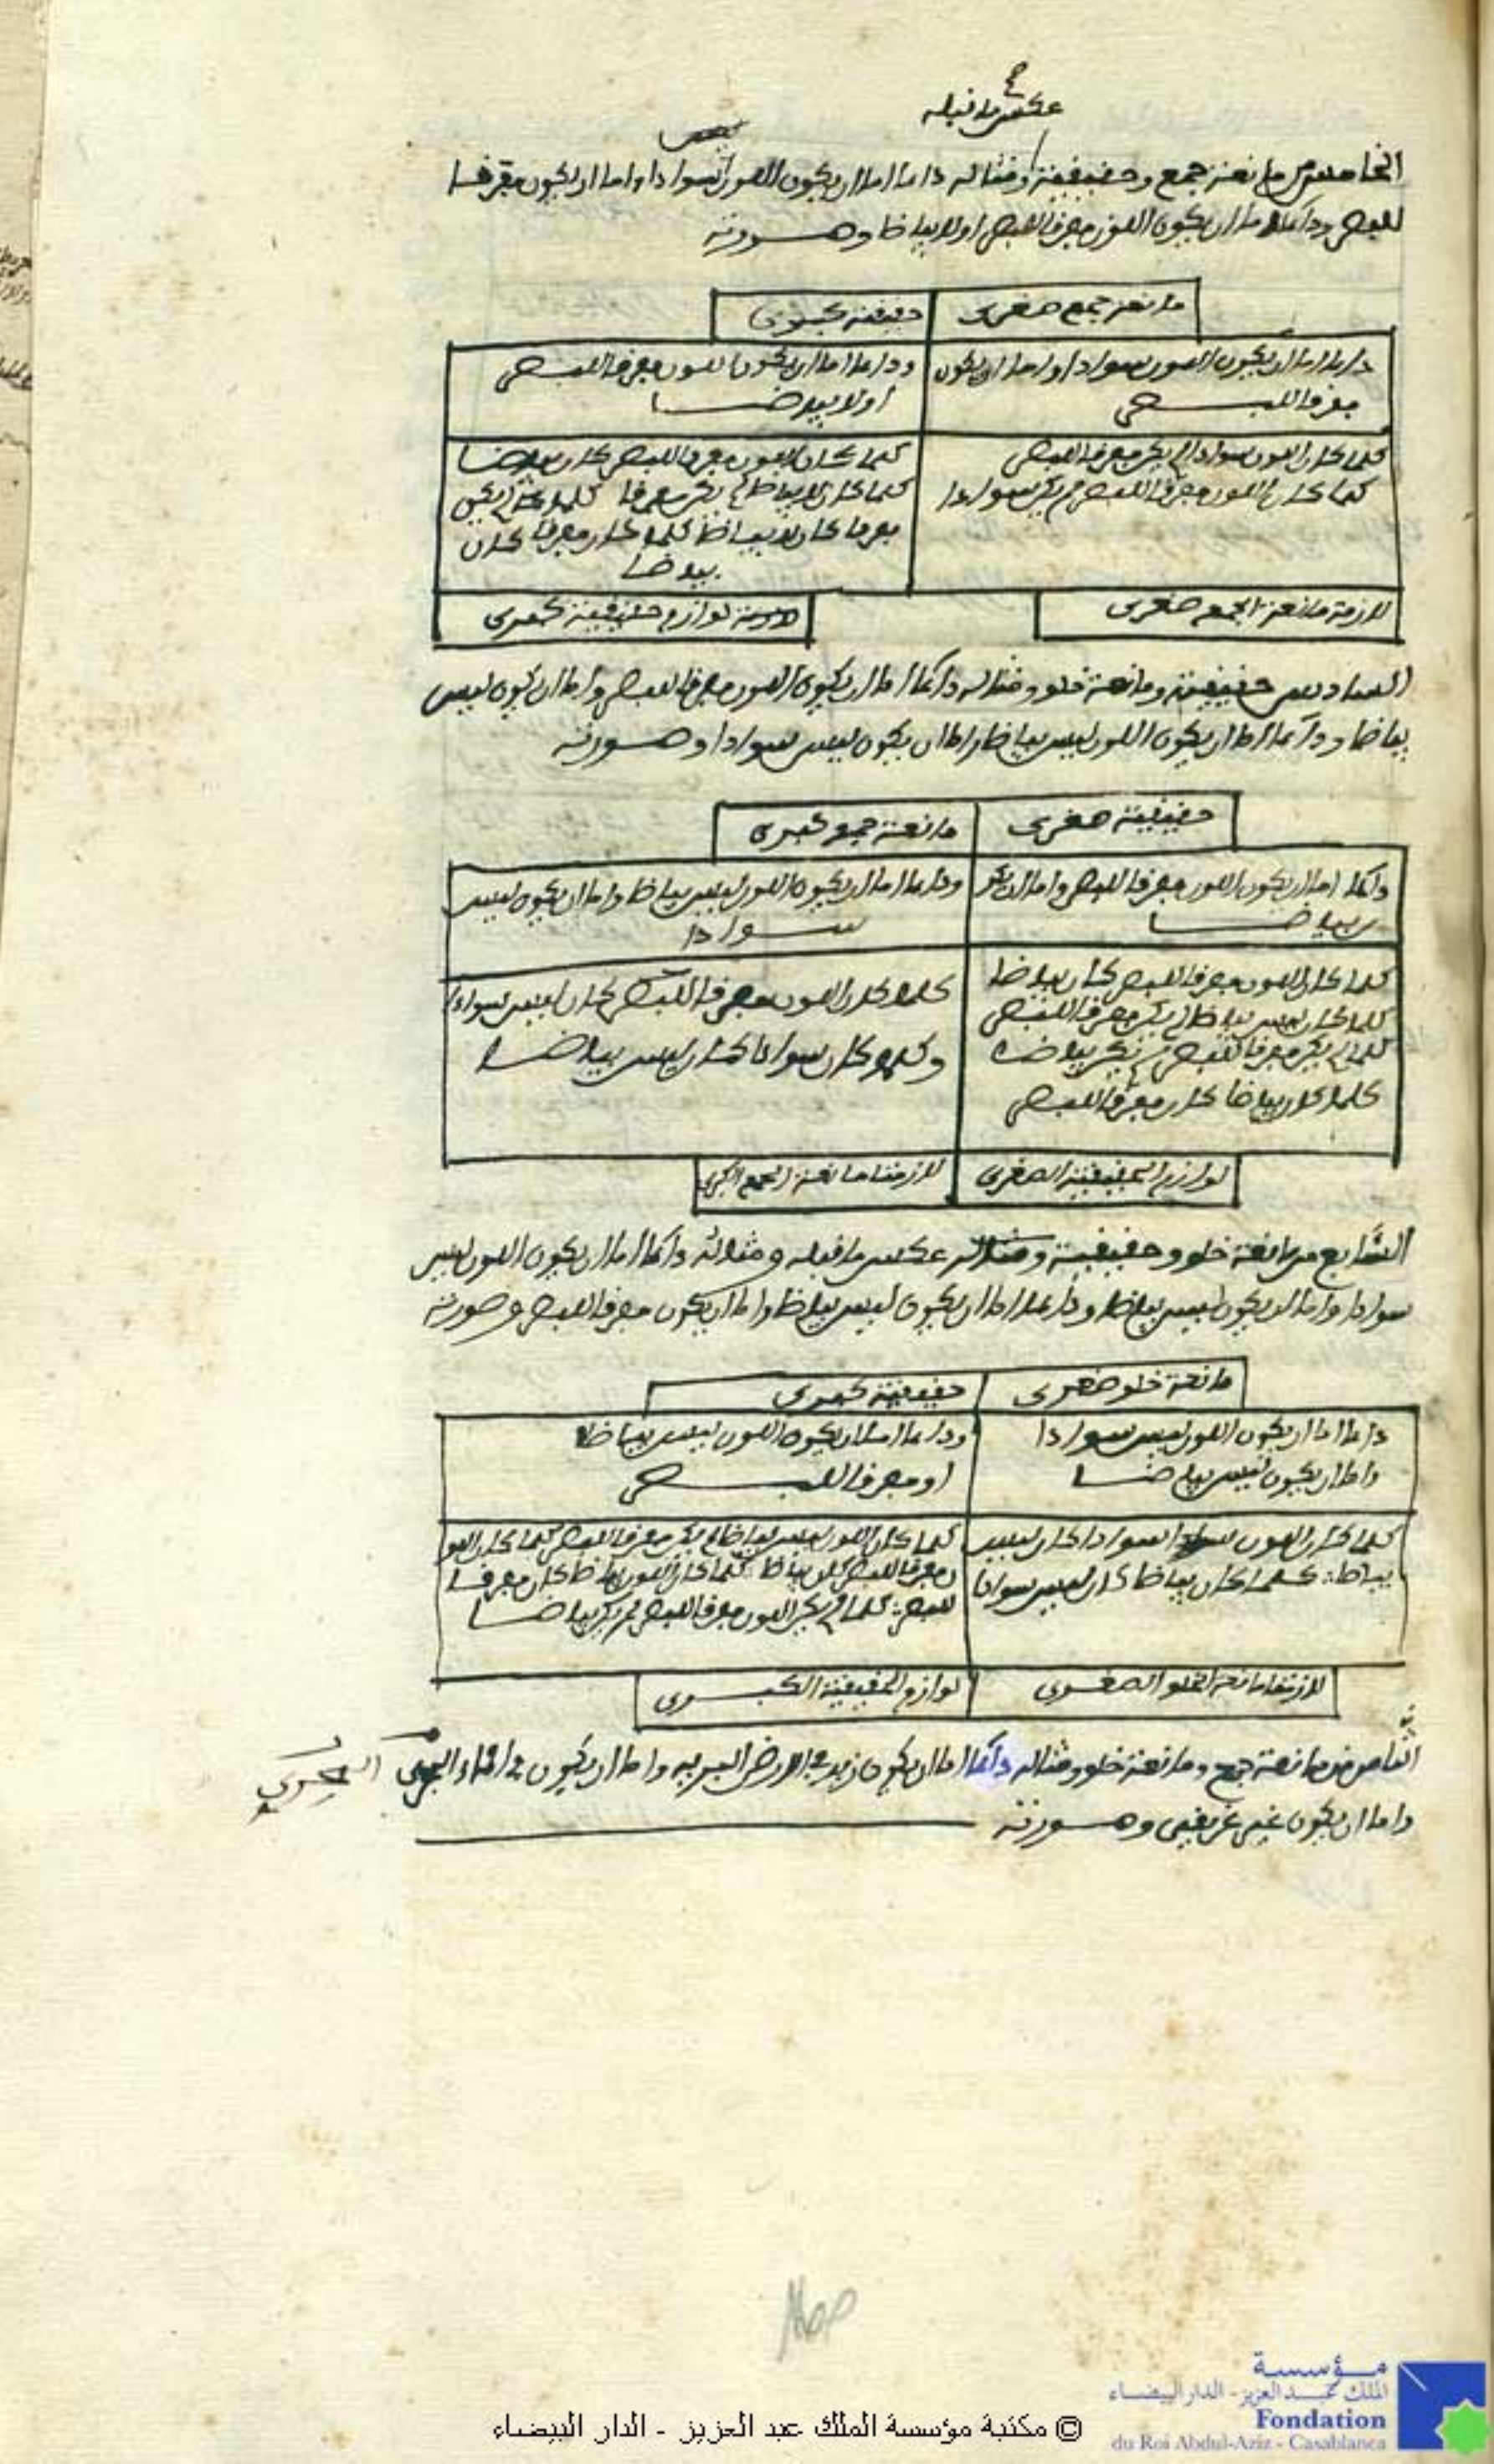 عكس ما قبله صح
الخامس من مانعة جمع وحقيقية ومثاله دائما اما ان يكون اللون سوادا واما ان يكون مفرقا
للبصر ودائما اما ان يكون اللون مفرقا للبصر اولا بياضا وصورته
مانعة جمع صغرى
حقيقية كبرى
دائما اما ان يكون اللون سوادا واما ان يكون
مفرقا للبصر
ودائما اما ان يكون اللون مفرقا للبصر
اولا بياضا
كلما كان اللون سوادا لم يكن مفرقا للبصر
كلما كان اللون مفرقا للبصر لم يكن سوادا
كلما كان اللون مفرقا للبصر كان بياضا
كلما كان لا بياضا لم يكن مفرقا كلما لم يكن
مفرقا كان لا بياضا كلما كان مفرقا كان
بياضا
لازمة مانعة الجمع صغرى
لوازم حقيقية كبرى
السادس حقيقية ومانعة خلو ومثاله دائما اما ان يكون اللون مفرقا للبصر واما ان يكون ليس
بياضا ودائما اما ان يكون اللون ليس بياضا واما ان يكون ليس سوادا وصورته
حقيقية صغرى
مانعة جمع كبرى
دائما اما ان يكون اللون مفرقا للبصر واما ان يكو
ن بياضا
ودائما اما ان يكون اللون ليس بياضا واما ان يكون ليس
سوادا
كلما كان اللون مفرقا للبصر كان بياضا
كلما كان ليس بياضا لم يكن مفرقا للبصر
كلما لم يكن مفرقا للبصر لم يكن بياضا
كلما كان بياضا كان مفرقا للبصر
كلما كان اللون مفرقا للبصر كان ليس سوادا
وكلما كان سوادا كان ليس بياضا
لوازم الحقيقية الصغرى
لازمتا مانعة الجمع الكبرى
السابع من مانعة خلو وحقيقية ومثاله عكس ما قبله ومثاله دائما اما ان يكون اللون ليس
سوادا واما ان يكون ليس بياضا ودائما اما ان يكون ليس بياضا واما ان يكون مفرقا للبصر وصورته
مانعة خلو صغرى
حقيقية كبرى
دائما اما ان يكون اللون ليس سوادا
واما ان يكون ليس بياضا
ودائما اما ان يكون اللون ليس بياضا
او مفرقا للبصر
كلما كان اللون سوادا كان ليس
بياضا كلما كان بياضا كان ليس سوادا
كلما كان اللون ليس بياضا لم يكن مفرقا للبصر كلما كان اللو
ن مفرقا للبصر كان بياضا كلما كان اللون بياضا كان مفرقا
للبصر كلما لم يكن اللون مفرقا للبصر لم يكن بياضا
لازمتا مانعة الخلو الصغرى
لوازم الحقيقية الكبرى
الثامن من مانعة جمع ومانعة خلو ومثاله دائما اما ان يكون زيد في الارض البرية واما ان يكون في الماء البحري
واما ان يكون غير غريق وصورته
مؤسسة
الملك عبد العزيز - الدار البيضاء
Fondation
du Roi Abdul-Aziz - Casablanca
© مكتبة مؤسسة الملك عبد العزيز - الدار البيضاء